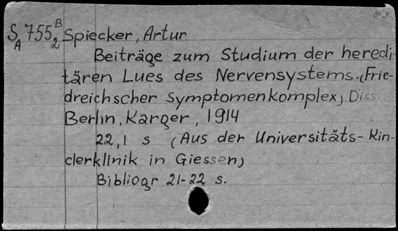 S A 755 B 2 Spiecker, Artur
Beiträge zum Studium der heredi
tären Lues des Nervensystems. (Frie-
dreichscher Symptomenkomplex). Diss.
Berlin, Karger, 1914
22,1 s (Aus der Universitäts-Kin-
clerklinik in Giessen)
Bibliogr 21-22 s.